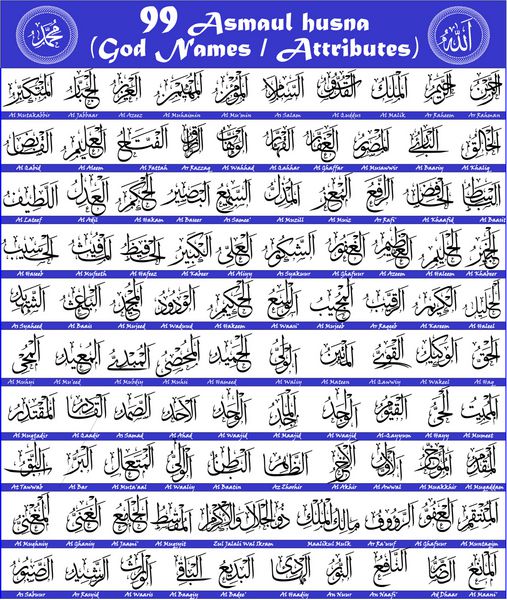 99 Asmaul husna
(God Names / Attributes)
محمد
الله
الرحمن الرحيم الملك القدوس السلام المؤمن المهيمن العزيز الجبار المتكبر
Al Mutakabbir Al Jabbaar Al Azeez Al Muhaimin Al Mu'min As Salam Al Quddus Al Malik Ar Raheem Ar Rahman
الخالق البارئ المصور الغفار القهار الوهاب الرزاق الفتاح العليم القابض
Al Qabid Al Aleem Al Fattah Ar Razzaq Al Wahhad Al Qahhar Al Ghaffar Al Musawwir Al Baariy Al Khaliq
الباسط الخافض الرافع المعز المذل السميع البصير الحكم العدل اللطيف
Al Lateef Al Adil Al Hakam Al Baseer As Samee' Al Muzill Al Muiz Ar Rafi' Al Khaafid Al Baasit
الخبير الحليم العظيم الغفور الشكور العلي الكبير الحفيظ المقيت الحسيب
Al Haseeb Al Muqeeth Al Hafeez Al Kabeer Al Aliyy As Syakuur Al Ghafuur Al Azeem Al Haleem Al Khabeer
الجليل الكريم الرقيب المجيب الواسع الحكيم الودود المجيد الباعث الشهيد
As Syaheed Al Baais Al Mujeed Al Waduud Al Hakeem Al Waasi' Al Mujeeb Ar Raqeeb Al Kareem Al Haleel
الحق الوكيل القوي المتين الولي الحميد المحصي المبدئ المعيد المحيي
Al Muhyi Al Mu'eed Al Mubdiy Al Muhsi Al Hameed Al Waliy Al Mateen Al Qawwiy Al Wakeel Al Haq
المميت الحي القيوم الواجد الماجد الواحد الأحد الصمد القادر المقتدر
Al Muqtadir Al Qaadir As Samad Al Ahad Al Waajid Al Maajid Al Waajid Al-Qayyum Al Hayy Al Mumeet
المقدم المؤخر الأول الآخر الظاهر الباطن الوالي المتعال البر التواب
At Tawwab Al Bar Al Muta'aal Al Waaliy Al Baatin Az Zhohir Al Akhir Al Awwal Al Muakkhir Al Muqaddam
المنتقم العفو الرؤوف مالك الملك ذو الجلال والإكرام المقسط الجامع الغني المغني
Al Mughniy Al Ghaniy Al Jaami' Al Muqsyit Zul Jalali Wal Ikram Maalikul Mulk Ar Ra'uuf Al Ghafuur Al Muntaqim
المانع الضار النافع النور الهادي البديع الباقي الوارث الرشيد الصبور
As Sabuur Ar Rasyid Al Waaris Al Baaqiy Al Badee' Al Haadiy An Nuur An Naafi' Ad Dhaar Al Maani'